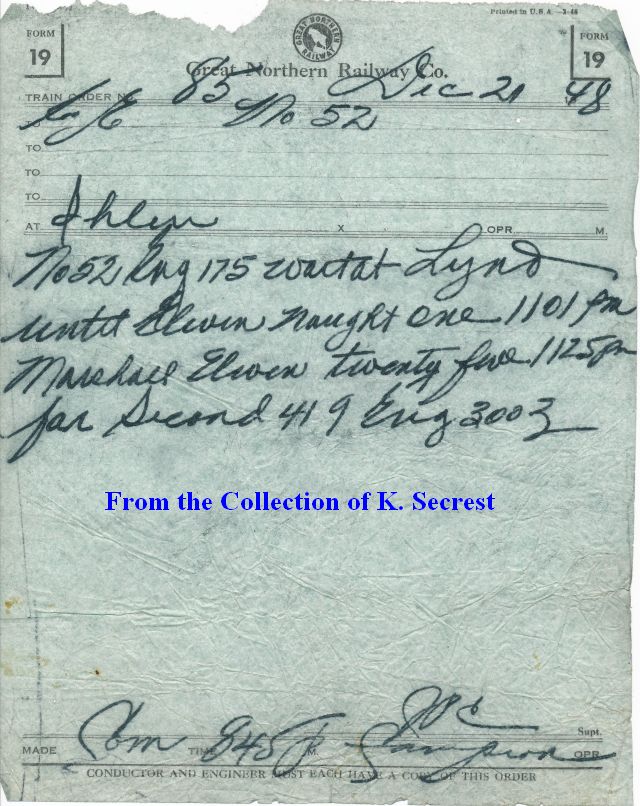 Printed in U.S.A. -3-46
FORM
19
GREAT NORTHERN RAILWAY
FORM
19
Great Northern Railway Co.
TRAIN ORDER No. 85 Dec 21 48
TO C&E No 52
TO
TO
TO
AT Ihlen X OPR. M.
No 52 Eng 175 wait at Lynd
until Eleven naught one 1101 pm
Marshall Eleven twenty five 1125 pm
for Second 419 Eng 3003
From the Collection of K. Secrest
Supt.
MADE Com TIME 845 P M. Sampson OPR.
CONDUCTOR AND ENGINEER MUST EACH HAVE A COPY OF THIS ORDER